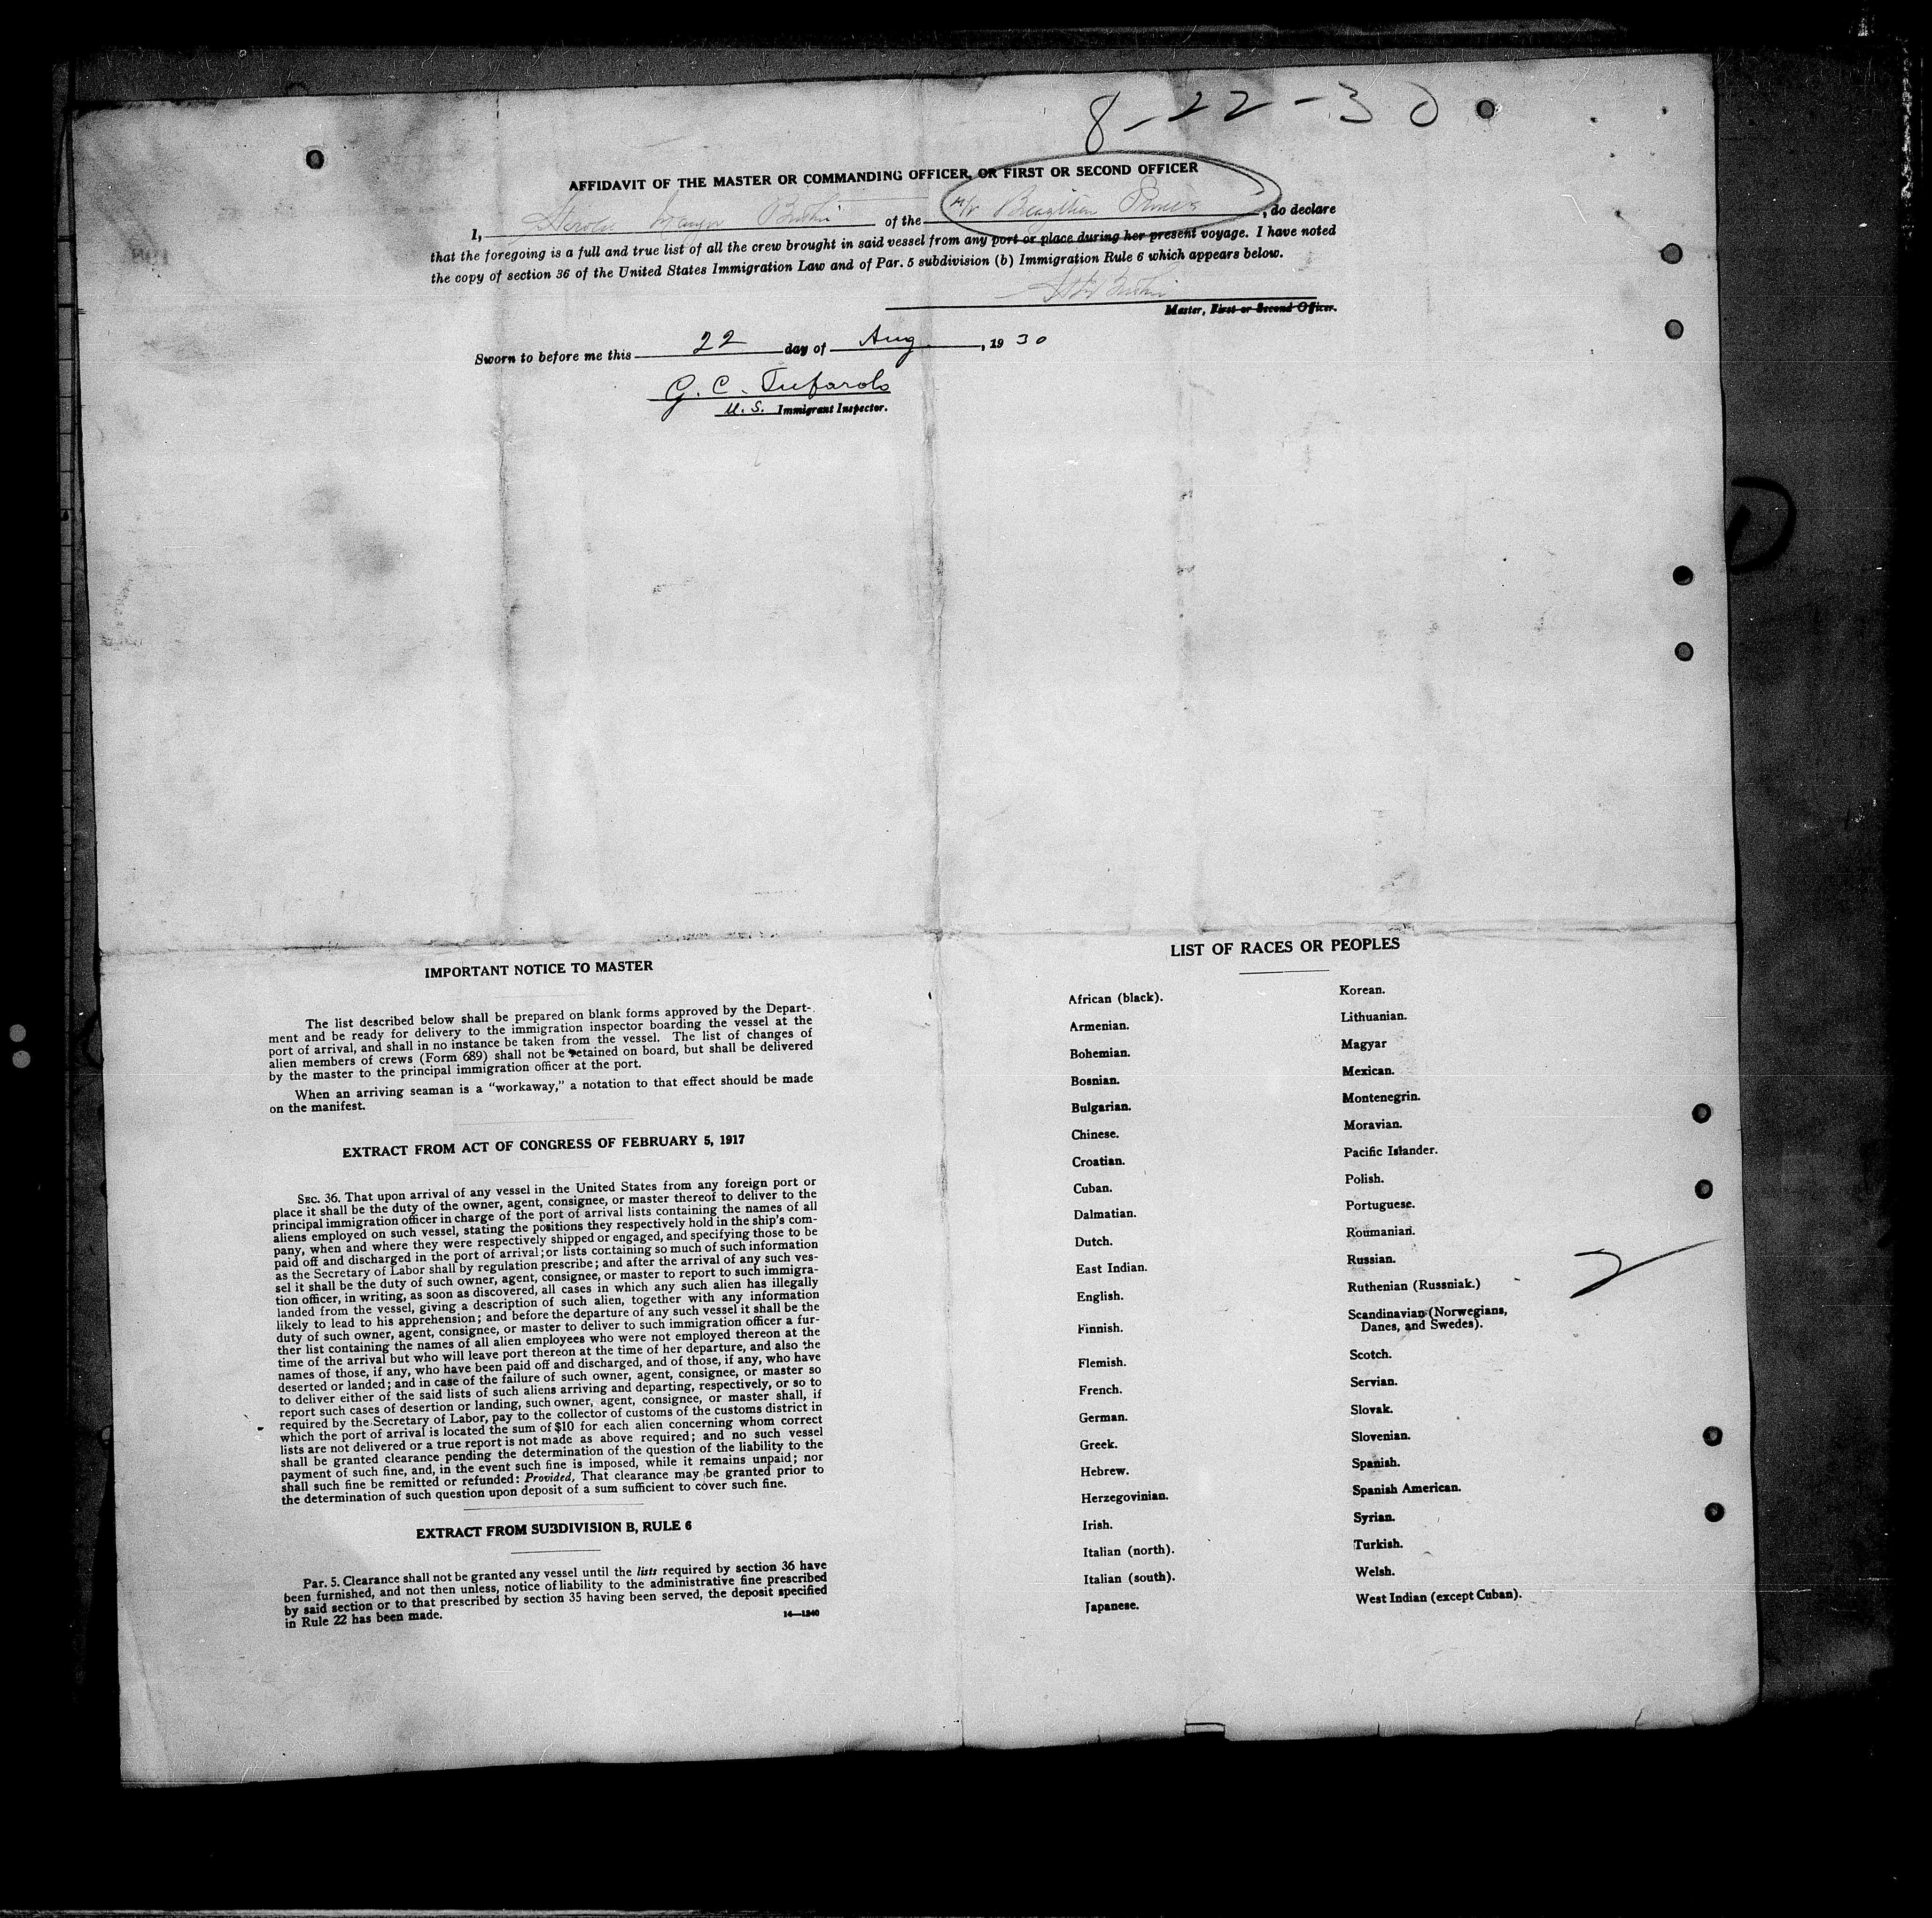 8-22-30
AFFIDAVIT OF THE MASTER OR COMMANDING OFFICER, OR FIRST OR SECOND OFFICER
I, of the M/V Brazilian Prince, do declare
that the foregoing is a full and true list of all the crew brought in said vessel from any port or place during her present voyage. I have noted
the copy of section 36 of the United States Immigration Law and of Par. 5 subdivision (b) Immigration Rule 6 which appears below.
Master, First or Second Officer.
Sworn to before me this 22 day of Aug, 1930
G. C. Tufarolo
U.S. Immigrant Inspector.
IMPORTANT NOTICE TO MASTER
The list described below shall be prepared on blank forms approved by the Depart-
ment and be ready for delivery to the immigration inspector boarding the vessel at the
port of arrival, and shall in no instance be taken from the vessel. The list of changes of
alien members of crews (Form 689) shall not be retained on board, but shall be delivered
by the master to the principal immigration officer at the port.
When an arriving seaman is a "workaway," a notation to that effect should be made
on the manifest.
EXTRACT FROM ACT OF CONGRESS OF FEBRUARY 5, 1917
SEC. 36. That upon arrival of any vessel in the United States from any foreign port or
place it shall be the duty of the owner, agent, consignee, or master thereof to deliver to the
principal immigration officer in charge of the port of arrival lists containing the names of all
aliens employed on such vessel, stating the positions they respectively hold in the ship's com-
pany, when and where they were respectively shipped or engaged, and specifying those to be
paid off and discharged in the port of arrival; or lists containing so much of such information
as the Secretary of Labor shall by regulation prescribe; and after the arrival of any such ves-
sel it shall be the duty of such owner, agent, consignee, or master to report to such immigra-
tion officer, in writing, as soon as discovered, all cases in which any such alien has illegally
landed from the vessel, giving a description of such alien, together with any information
likely to lead to his apprehension; and before the departure of any such vessel it shall be the
duty of such owner, agent, consignee, or master to deliver to such immigration officer a fur-
ther list containing the names of all alien employees who were not employed thereon at the
time of the arrival but who will leave port thereon at the time of her departure, and also the
names of those, if any, who have been paid off and discharged, and of those, if any, who have
deserted or landed; and in case of the failure of such owner, agent, consignee, or master so
to deliver either of the said lists of such aliens arriving and departing, respectively, or so to
report such cases of desertion or landing, such owner, agent, consignee, or master shall, if
required by the Secretary of Labor, pay to the collector of customs of the customs district in
which the port of arrival is located the sum of $10 for each alien concerning whom correct
lists are not delivered or a true report is not made as above required; and no such vessel
shall be granted clearance pending the determination of the question of the liability to the
payment of such fine, and, in the event such fine is imposed, while it remains unpaid; nor
shall such fine be remitted or refunded: Provided, That clearance may be granted prior to
the determination of such question upon deposit of a sum sufficient to cover such fine.
EXTRACT FROM SUBDIVISION B, RULE 6
Par. 5. Clearance shall not be granted any vessel until the lists required by section 36 have
been furnished, and not then unless, notice of liability to the administrative fine prescribed
by said section or to that prescribed by section 35 having been served, the deposit specified
in Rule 22 has been made.
14—1240
LIST OF RACES OR PEOPLES
African (black).
Armenian.
Bohemian.
Bosnian.
Bulgarian.
Chinese.
Croatian.
Cuban.
Dalmatian.
Dutch.
East Indian.
English.
Finnish.
Flemish.
French.
German.
Greek.
Hebrew.
Herzegovinian.
Irish.
Italian (north).
Italian (south).
Japanese.
Korean.
Lithuanian.
Magyar
Mexican.
Montenegrin.
Moravian.
Pacific Islander.
Polish.
Portuguese.
Roumanian.
Russian.
Ruthenian (Russniak.)
Scandinavian (Norwegians,
Danes, and Swedes).
Scotch.
Servian.
Slovak.
Slovenian.
Spanish.
Spanish American.
Syrian.
Turkish.
Welsh.
West Indian (except Cuban).
2